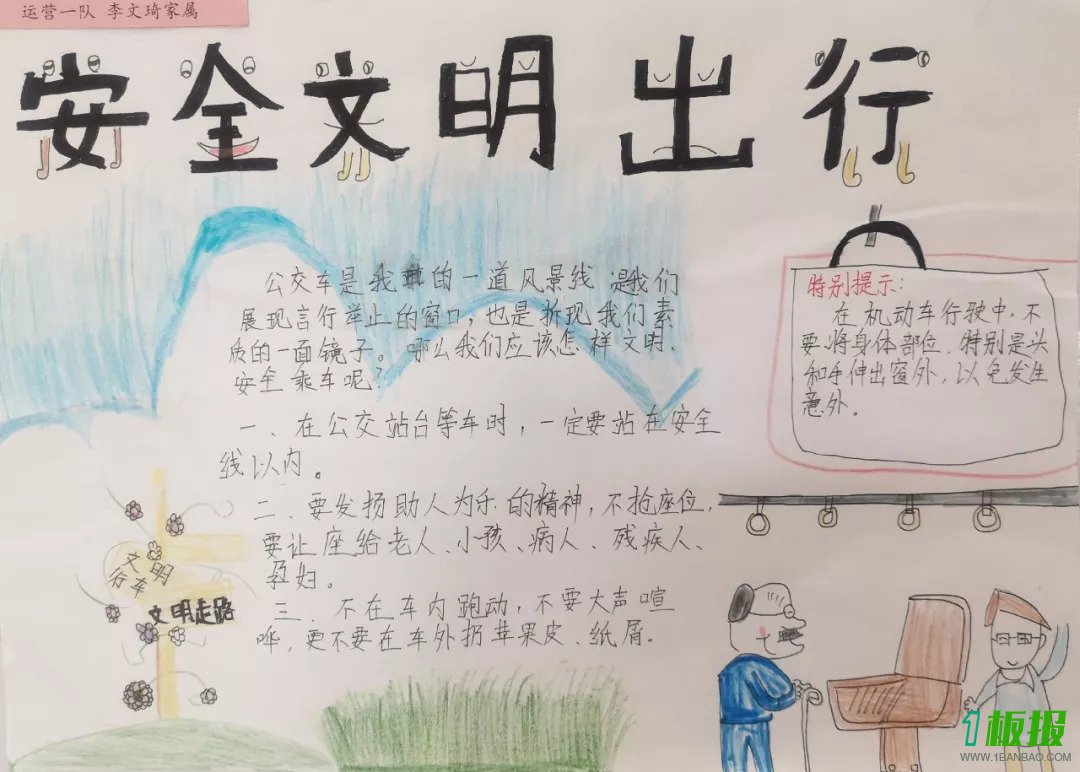 运营一队 李文琦家属
安全文明出行
公交车是我们的一道风景线 是我们
展现言行举止的窗口,也是折现我们素
质的一面镜子。哪么我们应该怎样文明、
安全乘车呢?
一、在公交站台等车时,一定要站在安全
线以内。
二、要发扬助人为乐的精神,不抢座位,
要让座给老人、小孩、病人、残疾人、
孕妇。
三、不在车内跑动,不要大声喧
哗,更不要在车外扔苹果皮、纸屑.
特别提示:
在机动车行驶中,不
要将身体部位,特别是头
和手伸出窗外,以免发生
意外。
文明
行车
文明走路
1板报
WWW.1BANBAO.COM